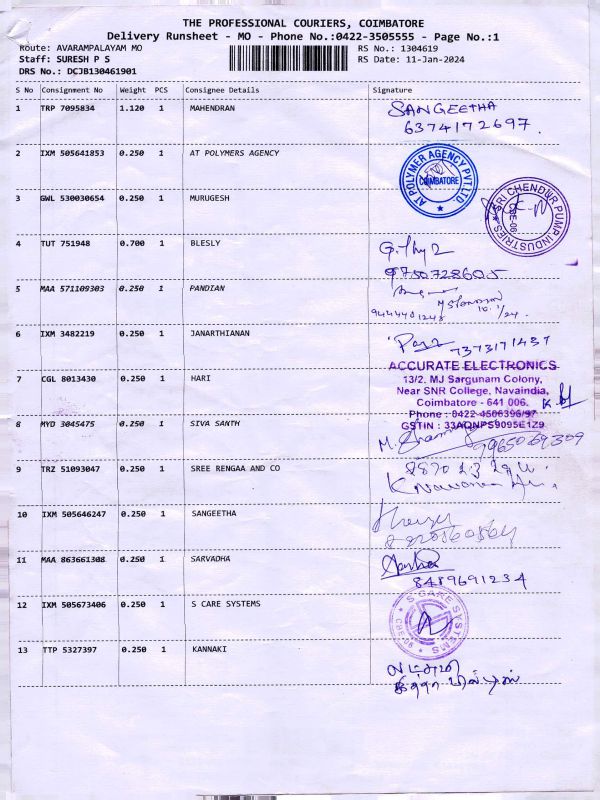 THE PROFESSIONAL COURIERS, COIMBATORE
Delivery Runsheet - MO - Phone No.:0422-3505555 - Page No.:1
Route: AVARAMPALAYAM MO RS No.: 1304619
Staff: SURESH P S RS Date: 11-Jan-2024
DRS No.: DCJB130461901
S No Consignment No Weight PCS Consignee Details Signature
1 TRP 7095834 1.120 1 MAHENDRAN SANGEETHA
6374172697.
2 IXM 505641853 0.250 1 AT POLYMERS AGENCY
AT POLYMER AGENCY PVT.LTD
COIMBATORE
3 GWL 530030654 0.250 1 MURUGESH
SRI CHENDUR PUMP INDUSTRIES
CBE-06
4 TUT 751948 0.700 1 BLESLY
9750728605
5 MAA 571109303 0.250 1 PANDIAN
6 IXM 3482219 0.250 1 JANARTHIANAN
7373171437
7 CGL 8013430 0.250 1 HARI
ACCURATE ELECTRONICS
13/2. MJ Sargunam Colony,
Near SNR College, Navaindia,
Coimbatore - 641 006.
Phone : 0422-4506396/97
GSTIN : 33AQNPS9095E1Z9
8 MYD 3045475 0.250 1 SIVA SANTH
9965069309
9 TRZ 51093047 0.250 1 SREE RENGAA AND CO
10 IXM 505646247 0.250 1 SANGEETHA
11 MAA 863661308 0.250 1 SARVADHA
8489691234
12 IXM 505673406 0.250 1 S CARE SYSTEMS
S CARE SYSTEMS
CBE-06
13 TTP 5327397 0.250 1 KANNAKI